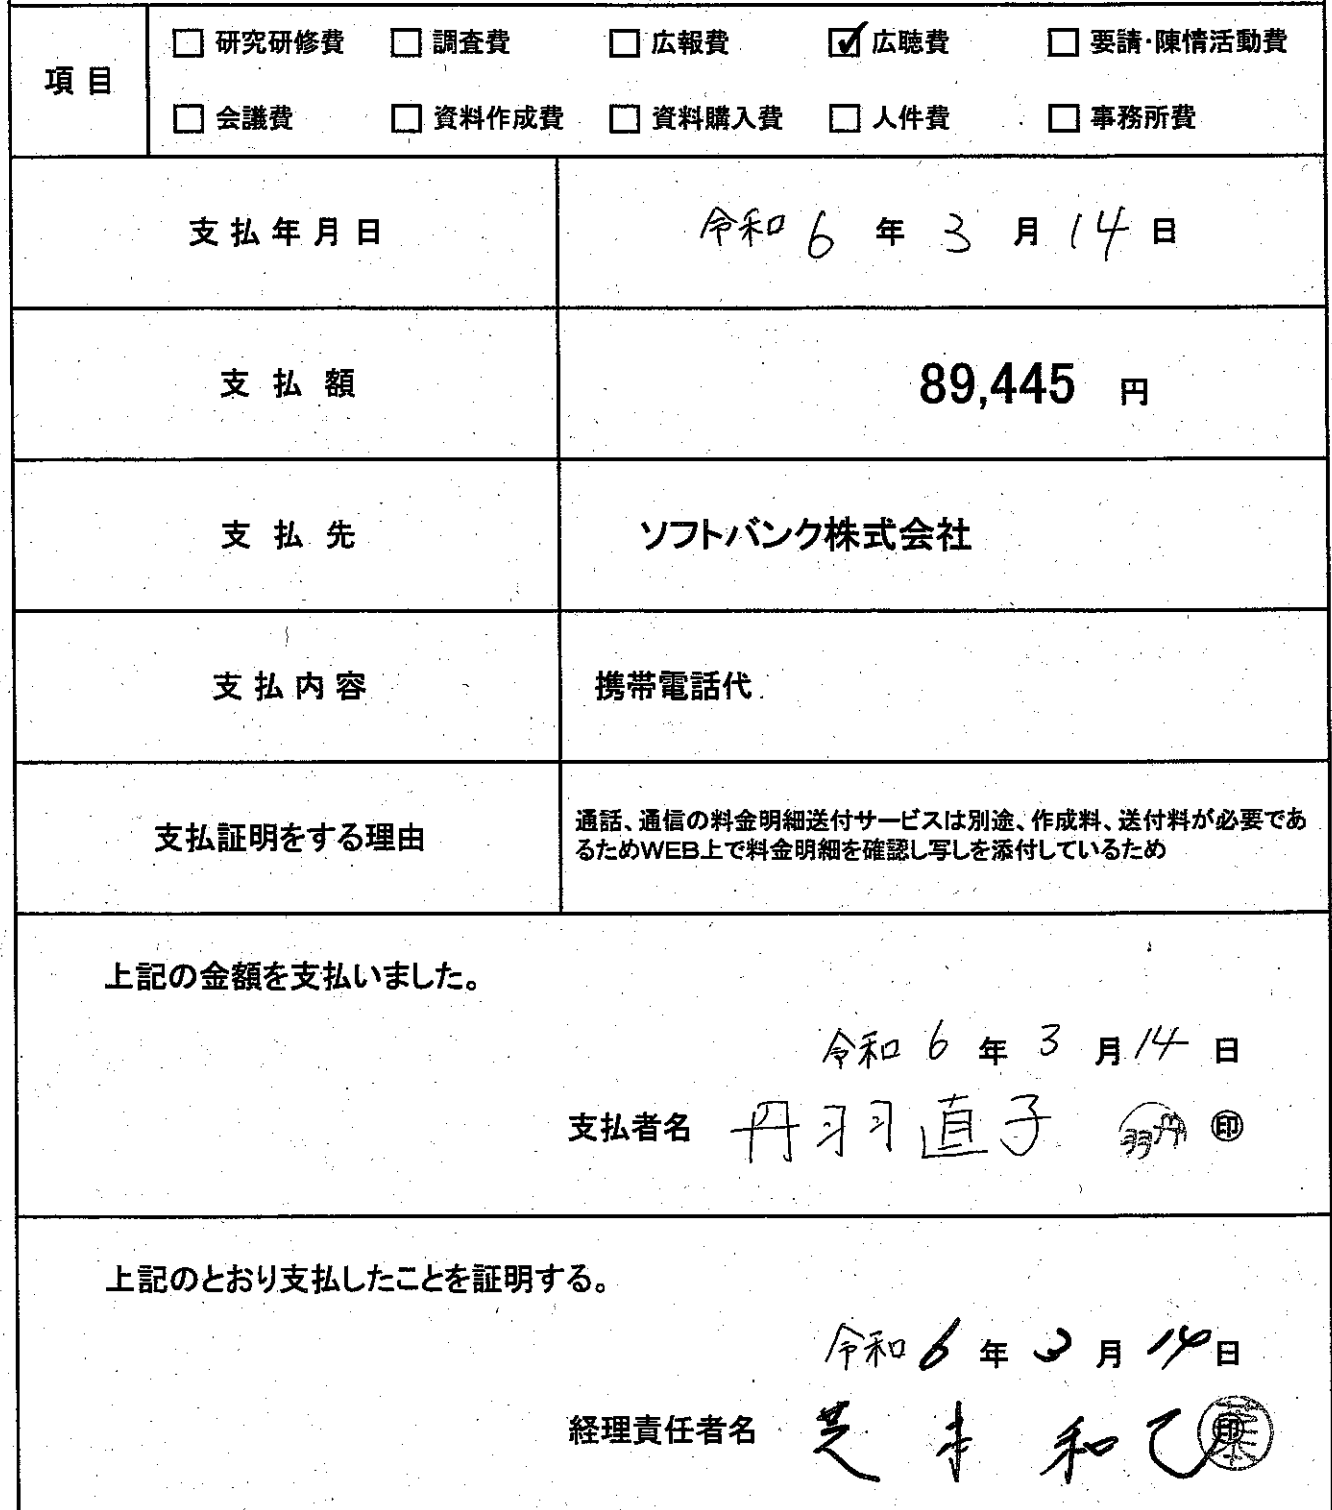 項目
□ 研究研修費 □ 調査費 □ 広報費 ☑ 広聴費 □ 要請・陳情活動費
□ 会議費 □ 資料作成費 □ 資料購入費 □ 人件費 □ 事務所費
支払年月日 令和 6 年 3 月 14 日
支払額 89,445 円
支払先 ソフトバンク株式会社
支払内容 携帯電話代
支払証明をする理由
通話、通信の料金明細送付サービスは別途、作成料、送付料が必要であ
るためWEB上で料金明細を確認し写しを添付しているため
上記の金額を支払いました。
令和 6 年 3 月 14 日
支払者名 丹羽直子 丹羽 ㊞
上記のとおり支払したことを証明する。
令和 6 年 3 月 14 日
経理責任者名 和 ㊞